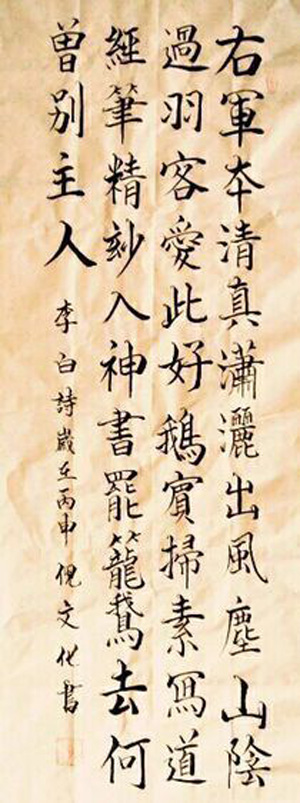 右軍本清真瀟灑出風塵山陰
過羽客愛此好鵝賓掃素寫道
經筆精妙入神書罷籠鵞去何
曾別主人
李白詩歲在丙申倪文化書